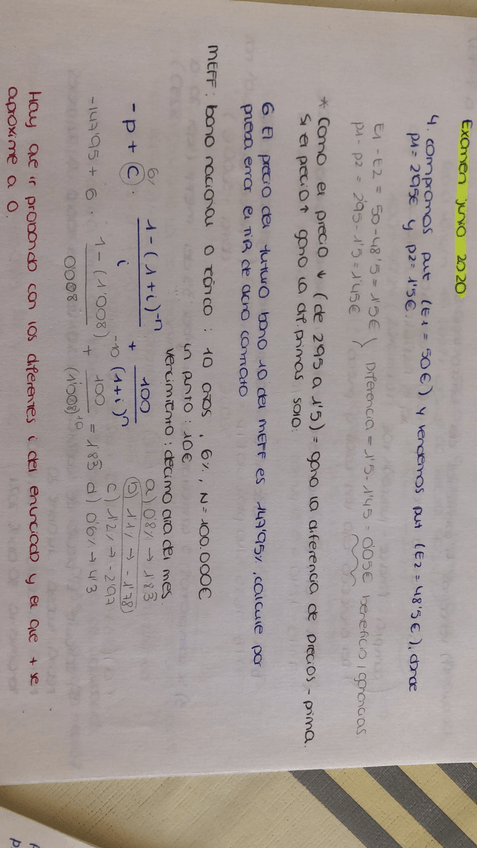 Examen junio 2020
4. compramos put (E1 = 50€) y vendemos put (E2 = 48'5€), donde
p1 = 2'95€ y p2 = 1'5€.
E1 - E2 = 50 - 48'5 = 1'5€
p1 - p2 = 2'95 - 1'5 = 1'45€
Diferencia = 1'5 - 1'45 = 0'05€ beneficio/ganancias
* Como el precio ↓ (de 2'95 a 1'5) = gano la diferencia de precios - prima.
Si el precio ↑ gano la dif. primas solo.
6. El precio del futuro bono 10 del MEFF es 147'95%, calcule por
prueba error el TIR de dicho contrato
MEFF: bono nacional o teórico: 10 años, 6%, N = 100.000€
un punto: 10€
vencimiento: décimo día del mes
6%
- P + C · 1 - (1+i)^-n / i + 100 / (1+i)^n
a) 0'8% → 1'83
b) 1'1% → -1'78
c) 1'2% → -2'97
d) 0'6% → 4'3
-147'95 + 6 · 1 - (1'008)^-10 / 0'008 + 100 / (1'008)^10 = 1'83
Hay que ir probando con los diferentes i del enunciado y el que + se
aproxime a 0.